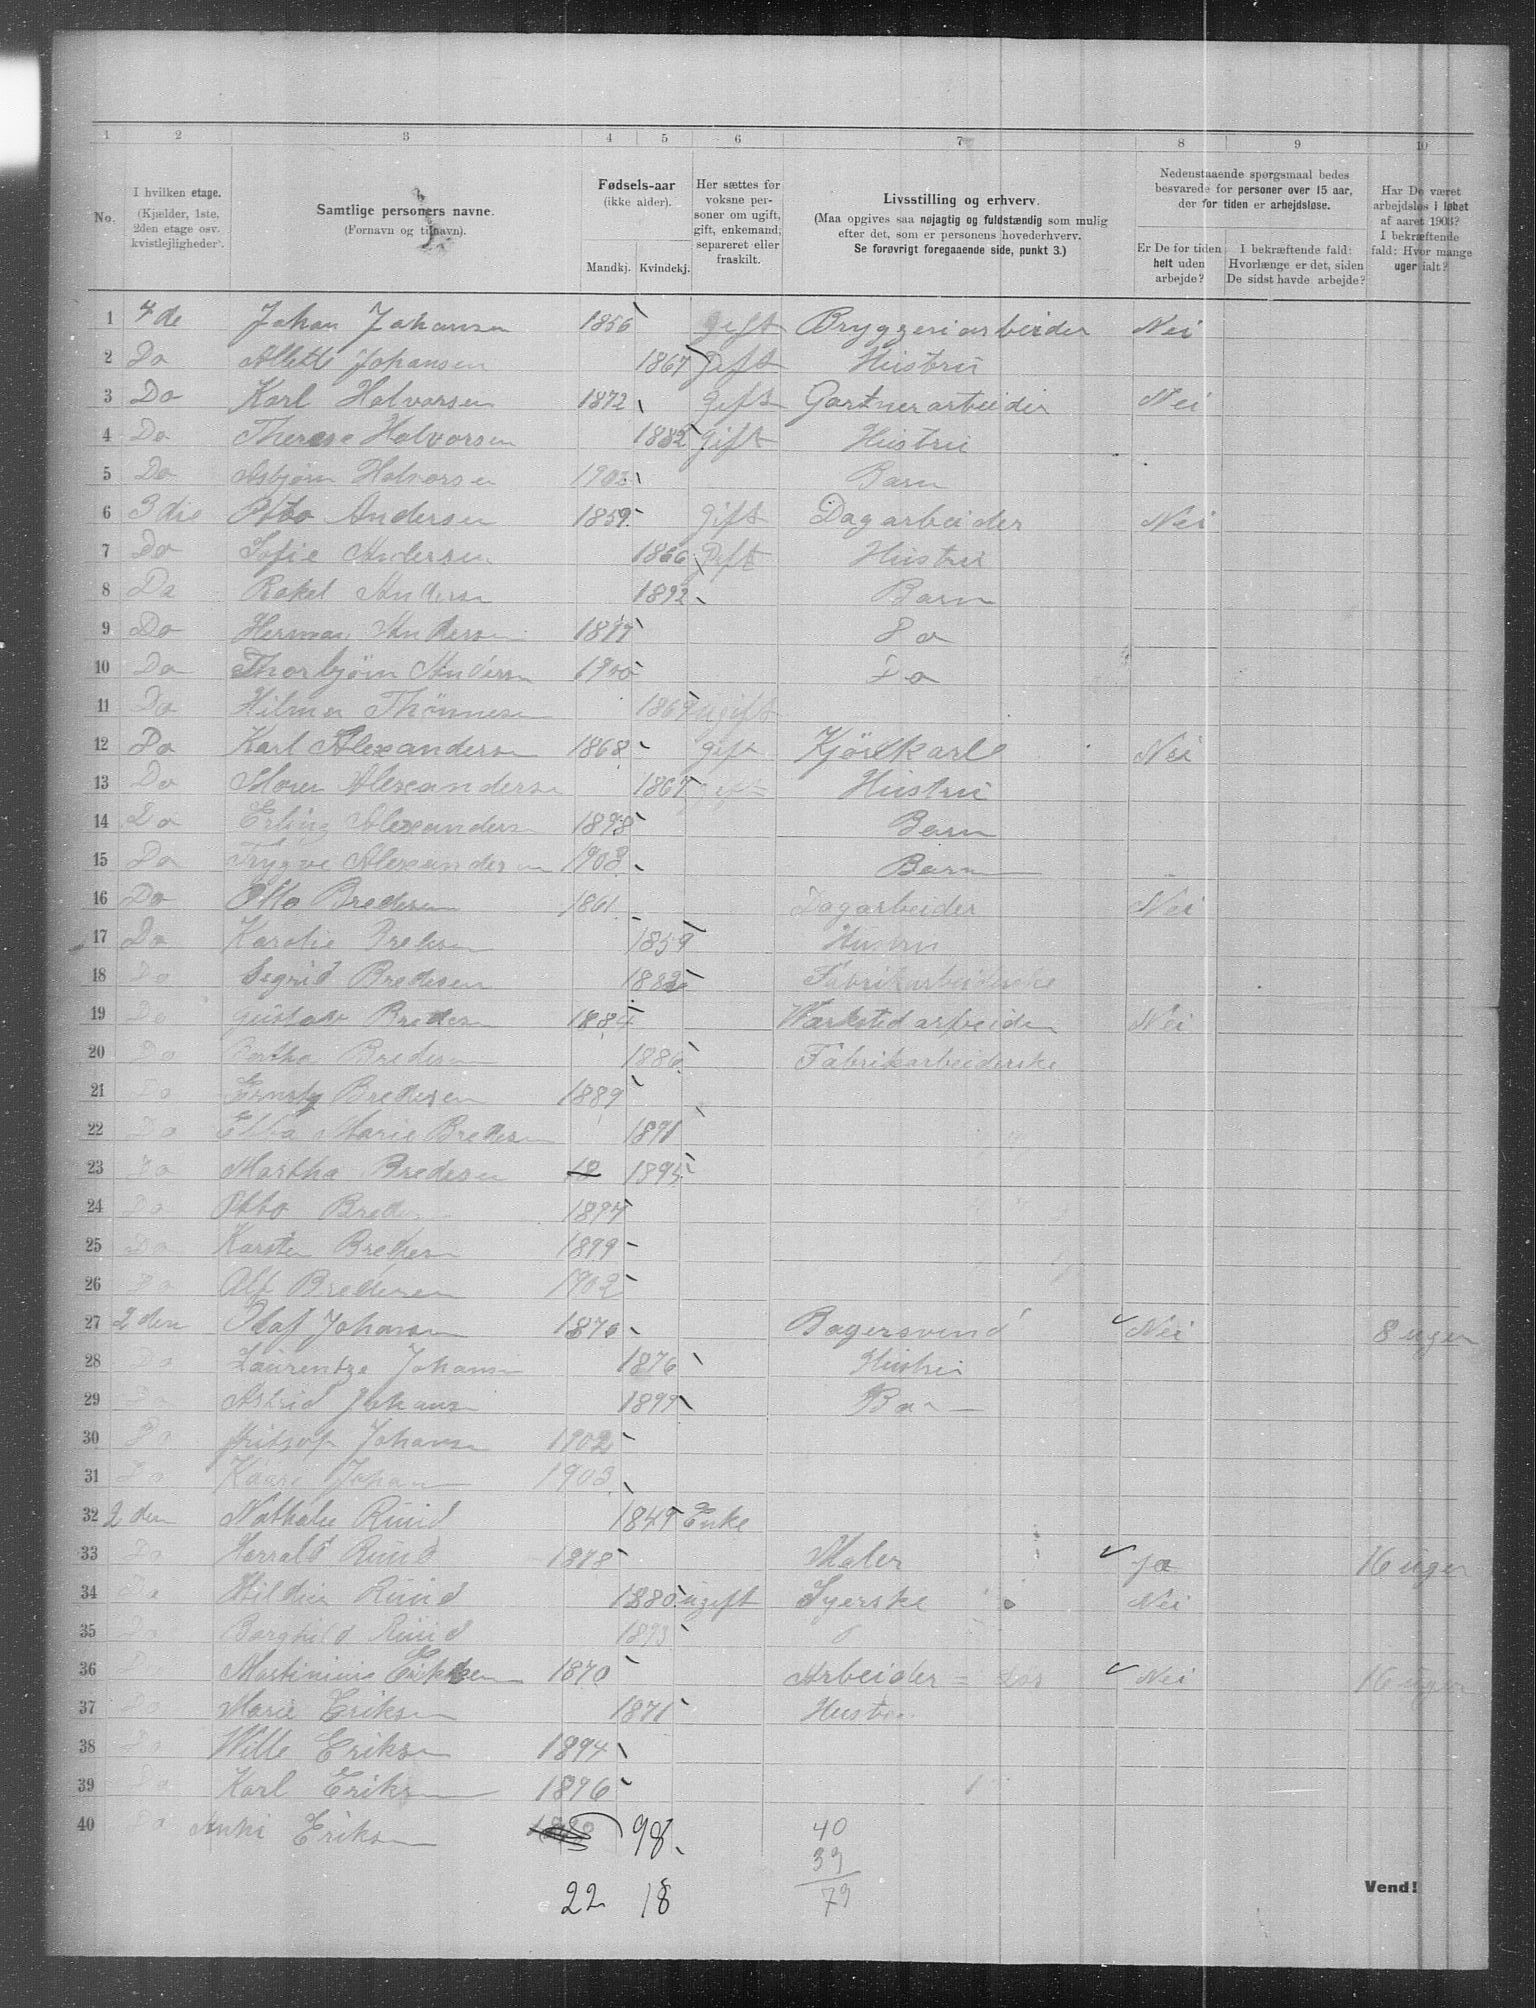 1 2 3 4 5 6 7 8 9 10
No.
I hvilken etage.
(Kjælder, 1ste,
2den etage osv.
kvistlejligheder).
Samtlige personers navne.
(Fornavn og tilnavn).
Fødsels-aar
(ikke alder).
Mandkj. Kvindekj.
Her sættes for
voksne per-
soner om ugift,
gift, enkemand,
separeret eller
fraskilt.
Livsstilling og erhverv.
(Maa opgives saa nøjagtig og fuldstændig som mulig
efter det, som er personens hovederhverv.
Se forøvrigt foregaaende side, punkt 3.)
Nedenstaaende spørgsmaal bedes
besvarede for personer over 15 aar,
der for tiden er arbejdsløse.
Er De for tiden
helt uden
arbejde?
I bekræftende fald:
Hvorlænge er det, siden
De sidst havde arbejde?
Har De været
arbejdsløs i løbet
af aaret 1903?
I bekræftende
fald: Hvor mange
uger ialt?
1 4de Johan Johansen 1856 gift Bryggeriarbeider Nei
2 Do Alette Johansen 1867 gift Hustru
3 Do Karl Halvorsen 1872 gift Gartnerarbeider Nei
4 Do Therese Halvorsen 1882 gift Hustru
5 Do Asbjørn Halvorsen 1902 Barn
6 3die Otto Andersen 1859 gift Dagarbeider Nei
7 Do Sofie Andersen 1866 gift Hustru
8 Do Rakel Andersen 1892 Barn
9 Do Herman Andersen 1897 Do
10 Do Thorbjørn Andersen 1900 Do
11 Do Hilma Thønnesen 1869 ugift
12 Do Karl Alexandersen 1868 gift Kjørekarl Nei
13 Do Alexandersen 1867 gift Hustru
14 Do Erling Alexandersen 1898 Barn
15 Do Trygve Alexandersen 1903 Barn
16 Do Otto Bredesen 1861 Dagarbeider Nei
17 Do Bredesen 1859 Hustru
18 Do Sigrid Bredesen 1882 Fabrikarbeiderske
19 Do Gustav Bredesen 1884 Værkstedarbeider Nei
20 Do Bertha Bredesen 1886 Fabrikarbeiderske
21 Do Ernst Bredesen 1889
22 Do Ebba Marie Bredesen 1891
23 Do Martha Bredesen 18 1895
24 Do Otto Bredesen 1897
25 Do Karsten Bredesen 1899
26 Do Alf Bredesen 1902
27 2den Olaf Johansen 1870 Bagersvend Nei 8 uger
28 Do Laurentze Johansen 1876 Hustru
29 Do Astrid Johansen 1899 Barn
30 Do Fritjof Johansen 1902
31 Do Kaare Johansen 1903
32 2den Nathalie Ruud 1849 Enke
33 Do Harrald Ruud 1878 Maler Ja 16 uger
34 Do Ruud 1880 ugift Syerske Nei
35 Do Borghild Ruud 1893
36 Do Martinius Eriksen 1870 Arbeider Nei 16 uger
37 Do Marie Eriksen 1871 Hustru
38 Do Wille Eriksen 1894
39 Do Karl Eriksen 1896
40 Do Eriksen 98
22 18
40
39
79
Vend!